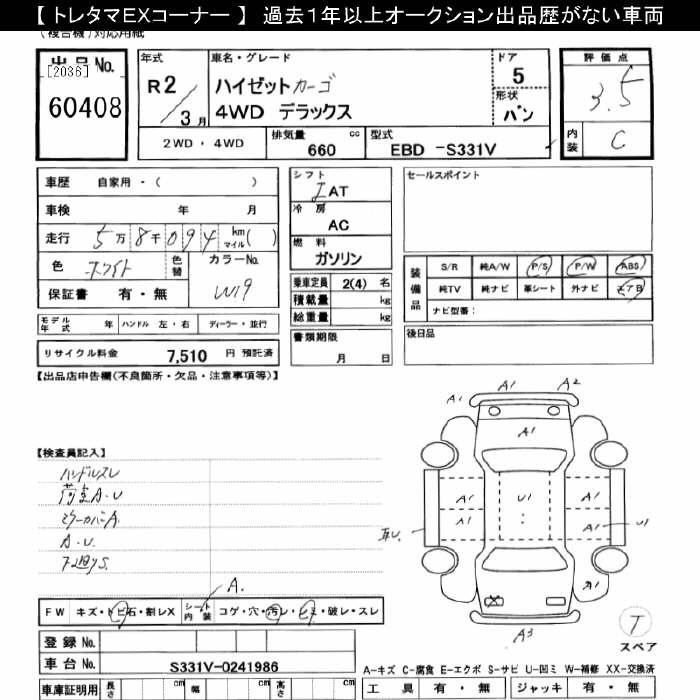 【 トレタマEXコーナー 】 過去1年以上オークション出品歴がない車両
(複合機)対応用紙
出品 No.
[2036]
60408
年式
R2/3月
車名・グレード
ハイゼットカーゴ
4WD デラックス
ドア
5
形状
バン
評価点
3.5
内装
C
2WD・4WD
排気量 cc
660
型式
EBD -S331V
車歴 自家用・( )
車検 年 月
走行 5万8千094 km マイル( )
色 ホワイト
色替
カラーNo.
W19
保証書 有・無
モデル年式 年
ハンドル 左・右
ディーラー・並行
リサイクル料金 7,510 円 預託済
シフト
IAT
冷房
AC
燃料
ガソリン
乗車定員 2(4) 名
積載量 kg
総重量 kg
書類期限
月 日
セールスポイント
装備品
S/R 純A/W P/S P/W ABS
純TV 純ナビ 革シート 外ナビ エアB
ナビ型番:
後日品
【出品店申告欄(不良箇所・欠品・注意事項等)】
【検査員記入】
ハンドルスレ
荷室A・U
ミラーカバーA
A・U
A1
A1
A2
A1
A1
A1
U1
A1
A1
U1
A1
A3
A.
FW キズ・トビ石・割レX
シート内装 コゲ・穴・汚レ・シミ・破レ・スレ
登録 No.
車台 No. S331V-0241986
車庫証明用 長さ cm 幅 cm 高さ cm
T
スペア
A-キズ C-腐食 E-エクボ S-サビ U-凹ミ W-補修 XX-交換済
工具 有・無 ジャッキ 有・無